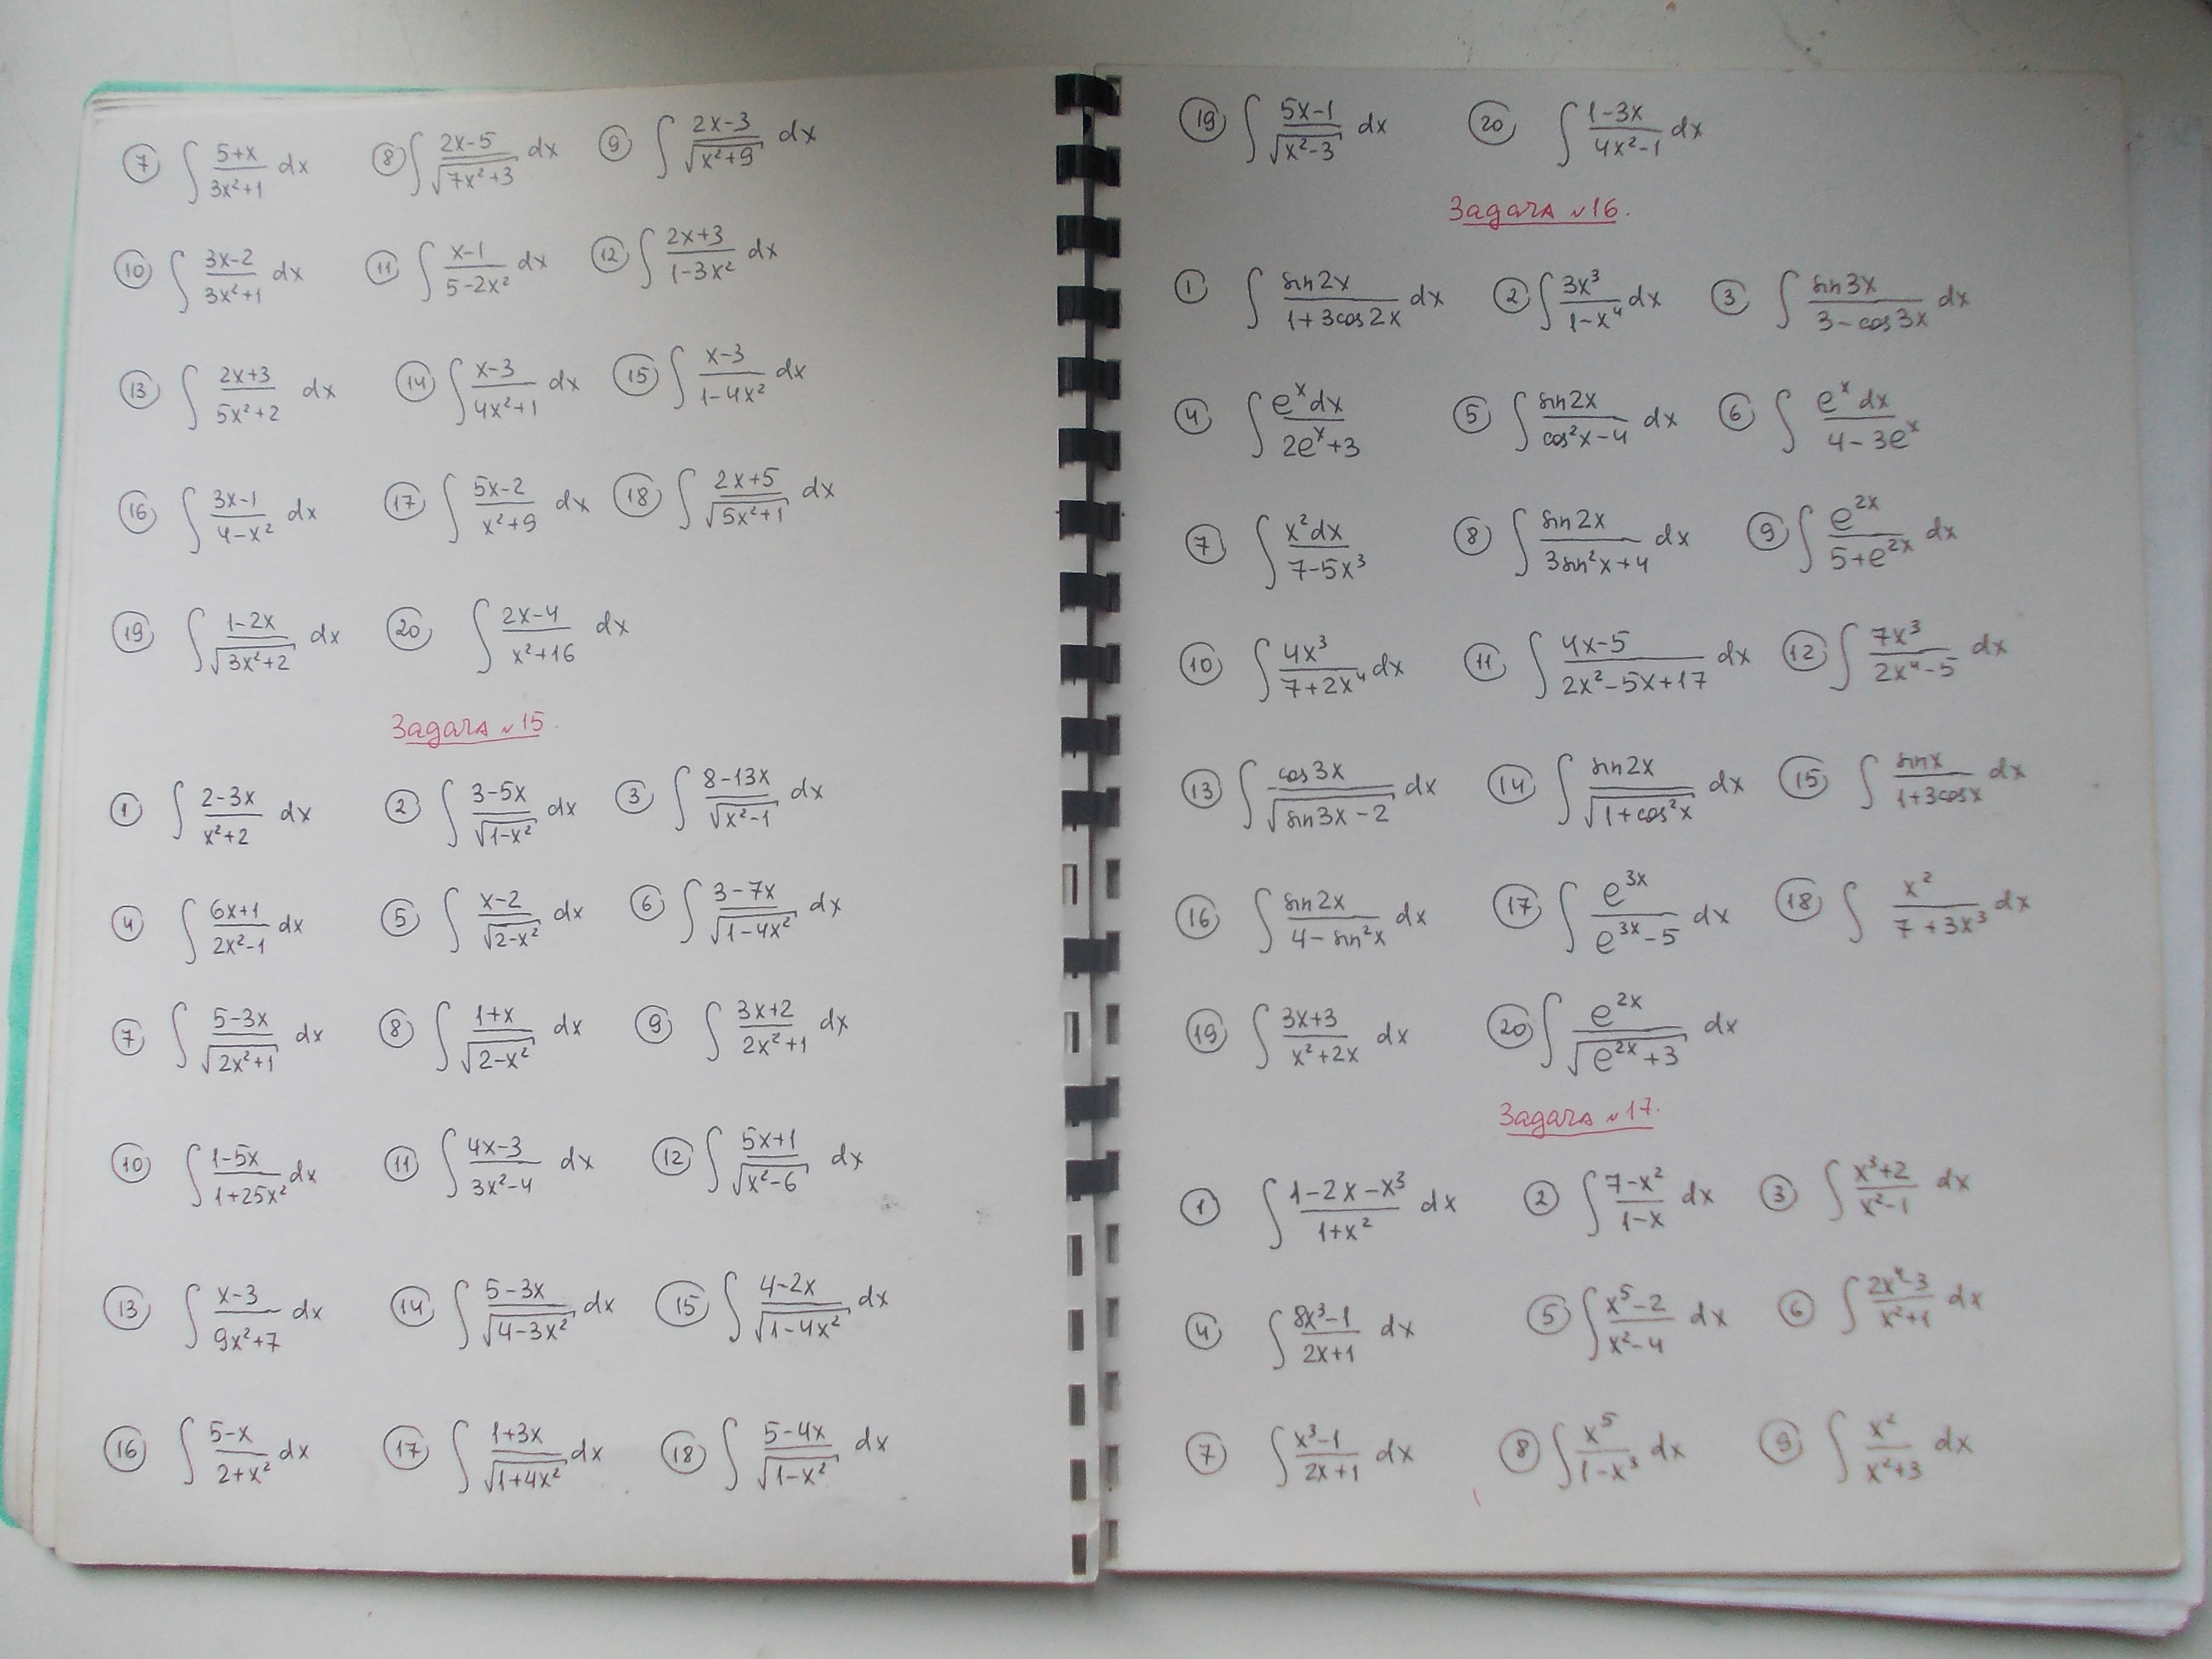 ⑦ ∫ (5+x)/(3x²+1) dx ⑧ ∫ (2x-5)/√(7x²+3) dx ⑨ ∫ (2x-3)/√(x²+9) dx
⑩ ∫ (3x-2)/(3x²+1) dx ⑪ ∫ (x-1)/(5-2x²) dx ⑫ ∫ (2x+3)/(1-3x²) dx
⑬ ∫ (2x+3)/(5x²+2) dx ⑭ ∫ (x-3)/(4x²+1) dx ⑮ ∫ (x-3)/(1-4x²) dx
⑯ ∫ (3x-1)/(4-x²) dx ⑰ ∫ (5x-2)/(x²+9) dx ⑱ ∫ (2x+5)/√(5x²+1) dx
⑲ ∫ (1-2x)/√(3x²+2) dx ⑳ ∫ (2x-4)/(x²+16) dx
Задача №15.
① ∫ (2-3x)/(x²+2) dx ② ∫ (3-5x)/√(1-x²) dx ③ ∫ (8-13x)/√(x²-1) dx
④ ∫ (6x+1)/(2x²-1) dx ⑤ ∫ (x-2)/√(2-x²) dx ⑥ ∫ (3-7x)/√(1-4x²) dx
⑦ ∫ (5-3x)/√(2x²+1) dx ⑧ ∫ (1+x)/√(2-x²) dx ⑨ ∫ (3x+2)/(2x²+1) dx
⑩ ∫ (1-5x)/(1+25x²) dx ⑪ ∫ (4x-3)/(3x²-4) dx ⑫ ∫ (5x+1)/√(x²-6) dx
⑬ ∫ (x-3)/(9x²+7) dx ⑭ ∫ (5-3x)/√(4-3x²) dx ⑮ ∫ (4-2x)/√(1-4x²) dx
⑯ ∫ (5-x)/(2+x²) dx ⑰ ∫ (1+3x)/√(1+4x²) dx ⑱ ∫ (5-4x)/√(1-x²) dx
⑲ ∫ (5x-1)/√(x²-3) dx ⑳ ∫ (1-3x)/(4x²-1) dx
Задача №16.
① ∫ sin2x/(1+3cos2x) dx ② ∫ 3x³/(1-x⁴) dx ③ ∫ sin3x/(3-cos3x) dx
④ ∫ eˣdx/(2eˣ+3) ⑤ ∫ sin2x/(cos²x-4) dx ⑥ ∫ eˣdx/(4-3eˣ)
⑦ ∫ x²dx/(7-5x³) ⑧ ∫ sin2x/(3sin²x+4) dx ⑨ ∫ e²ˣ/(5+e²ˣ) dx
⑩ ∫ 4x³/(7+2x⁴) dx ⑪ ∫ (4x-5)/(2x²-5x+17) dx ⑫ ∫ 7x³/(2x⁴-5) dx
⑬ ∫ cos3x/√(sin3x-2) dx ⑭ ∫ sin2x/√(1+cos²x) dx ⑮ ∫ sinx/(1+3cosx) dx
⑯ ∫ sin2x/(4-sin²x) dx ⑰ ∫ e³ˣ/(e³ˣ-5) dx ⑱ ∫ x²/(7+3x³) dx
⑲ ∫ (3x+3)/(x²+2x) dx ⑳ ∫ e²ˣ/√(e²ˣ+3) dx
Задача №17.
① ∫ (1-2x-x³)/(1+x²) dx ② ∫ (7-x²)/(1-x) dx ③ ∫ (x³+2)/(x²-1) dx
④ ∫ (8x³-1)/(2x+1) dx ⑤ ∫ (x⁵-2)/(x²-4) dx ⑥ ∫ (2x⁴-3)/(x²+1) dx
⑦ ∫ (x³-1)/(2x+1) dx ⑧ ∫ x⁵/(1-x³) dx ⑨ ∫ x²/(x²+3) dx